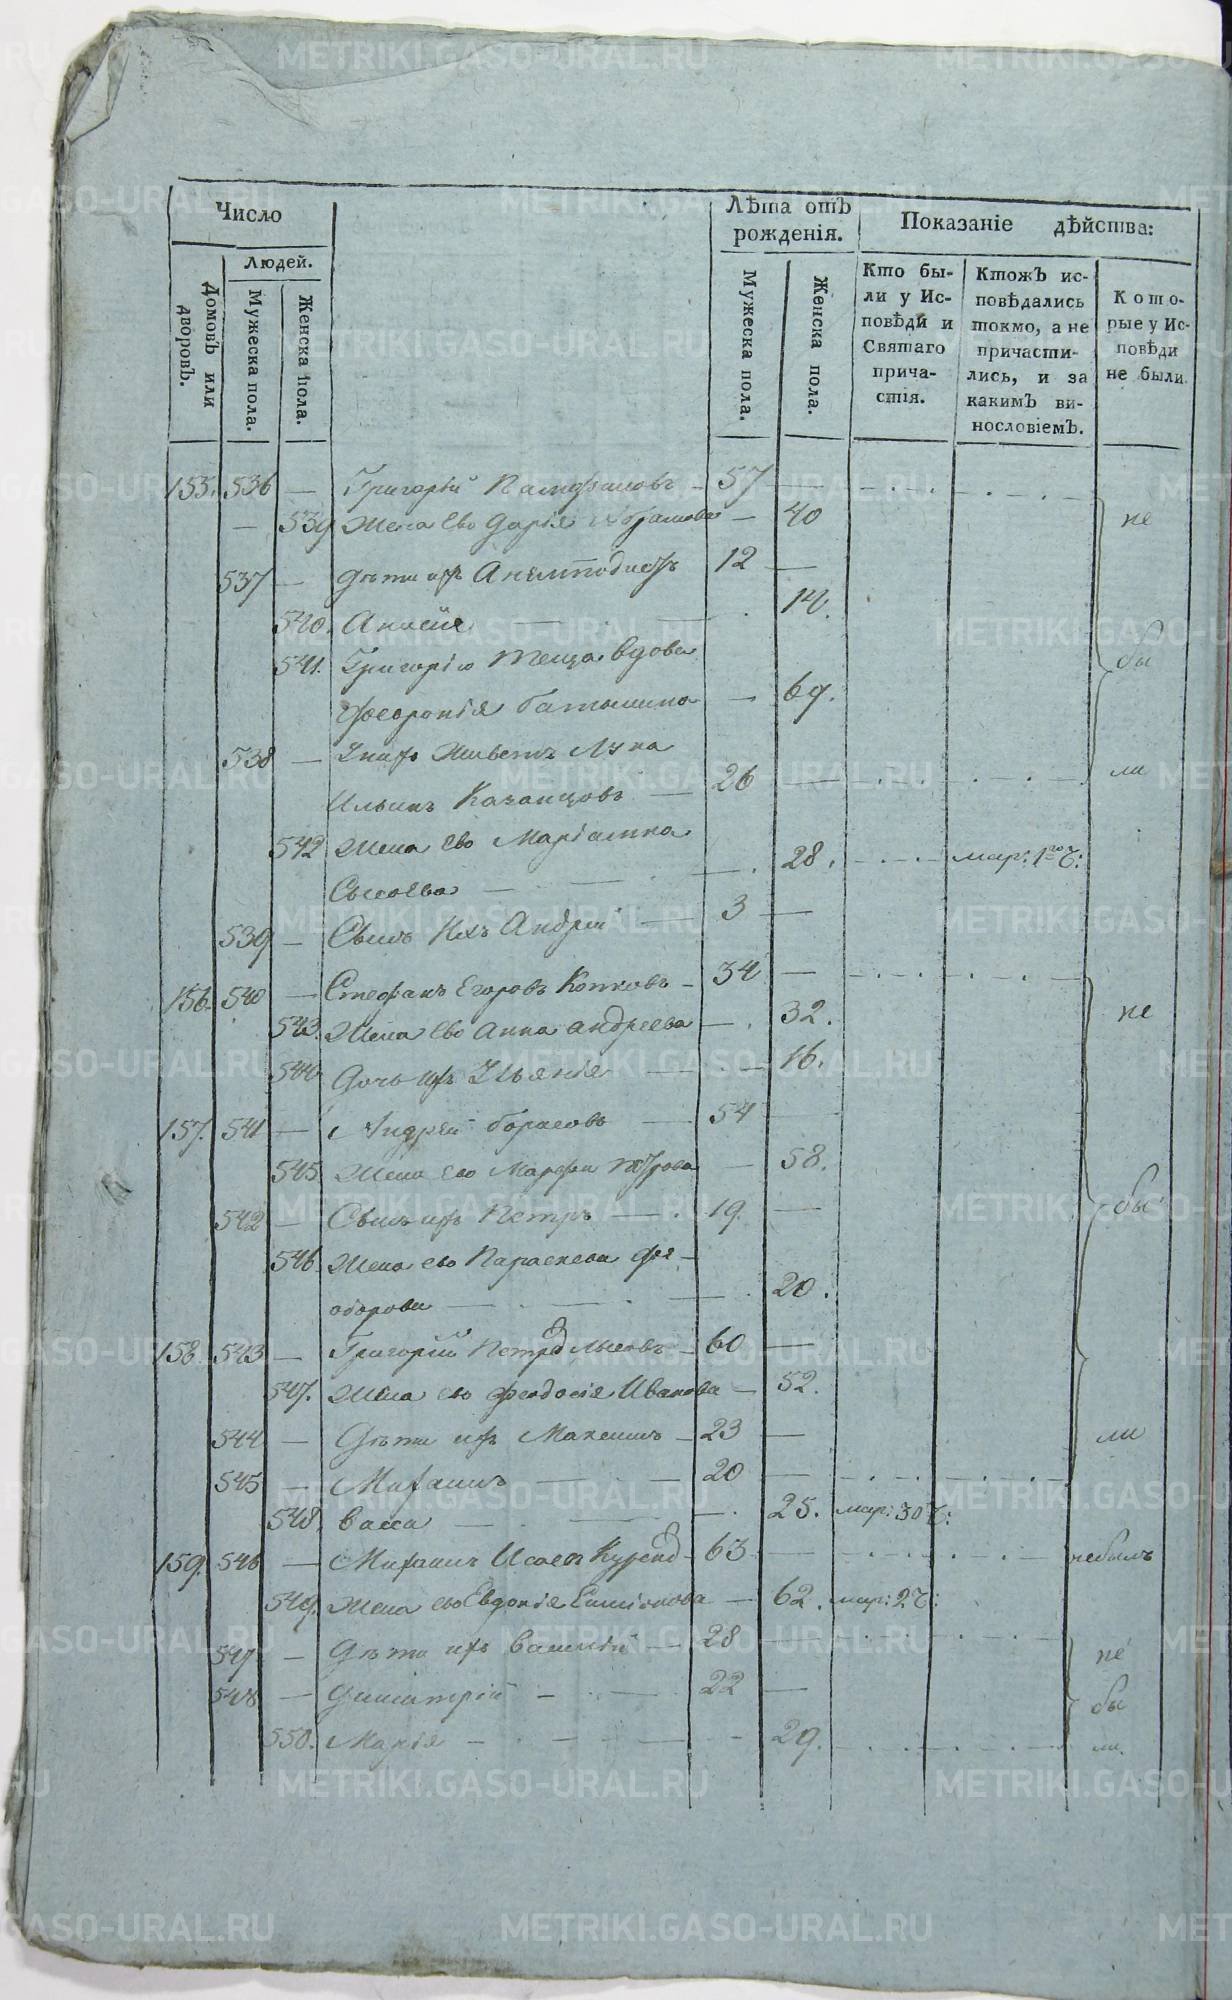 Число
Лѣта отъ рожденія.
Показаніе дѣйства:
Людей.
Домовъ или дворовъ.
Мужеска пола.
Женска пола.
Мужеска пола.
Женска пола.
Кто бы-
ли у Ис-
повѣди и
Святаго
прича-
стія.
Ктожъ ис-
повѣдались
токмо, а не
причасти-
лись, и за
какимъ ви-
нословіемъ.
Кото-
рые у Ис-
повѣди
не были.
155. 536 — Григорій Памфиловъ — 57 —
— 539 Жена Ево Дарія Абрамова — 40 не
537 — Дѣти ихъ Анемподистъ 12 —
540. 14.
541. Григорію теща вдова бы
Февронія — 69.
538 — У нихъ живетъ Лука
Ильинъ Казанцовъ — 26 — ли
542 Жена Ево Маріамна
Сысоева — 28. мар: 1го ч:
539 — Сынъ Ихъ Андрей — 3 —
156. 540 — Стефанъ Егоровъ Копковъ — 34 —
543. Жена Ево Анна Андреева — 32. не
544 Дочь ихъ Ульянія — 16.
157. 541 — Андрей Борисовъ — 54
545 Жена Ево Марфа Петрова — 58.
542 — Сынъ ихъ Петръ — 19. — бы
546. Жена ево Параскева Фе-
одорова — 20.
158. 543 — Григорій — 60 —
547. Жена ево Феодосія Иванова — 52.
544 — Дѣти ихъ Максимъ — 23 — ли
545 — Михаилъ — 20 —
548. Васса — 25. мар: 30 ч:
159. 546 — Михаилъ Исаевъ — 63 — небылъ
549. Жена ево Евдокія Симіонова — 62. мар: 2 ч:
547 — Дѣти ихъ Василій — 28 — не
548 — Димитрій — 22 — бы
550. Марія — 29. ли.
METRIKI.GASO-URAL.RU